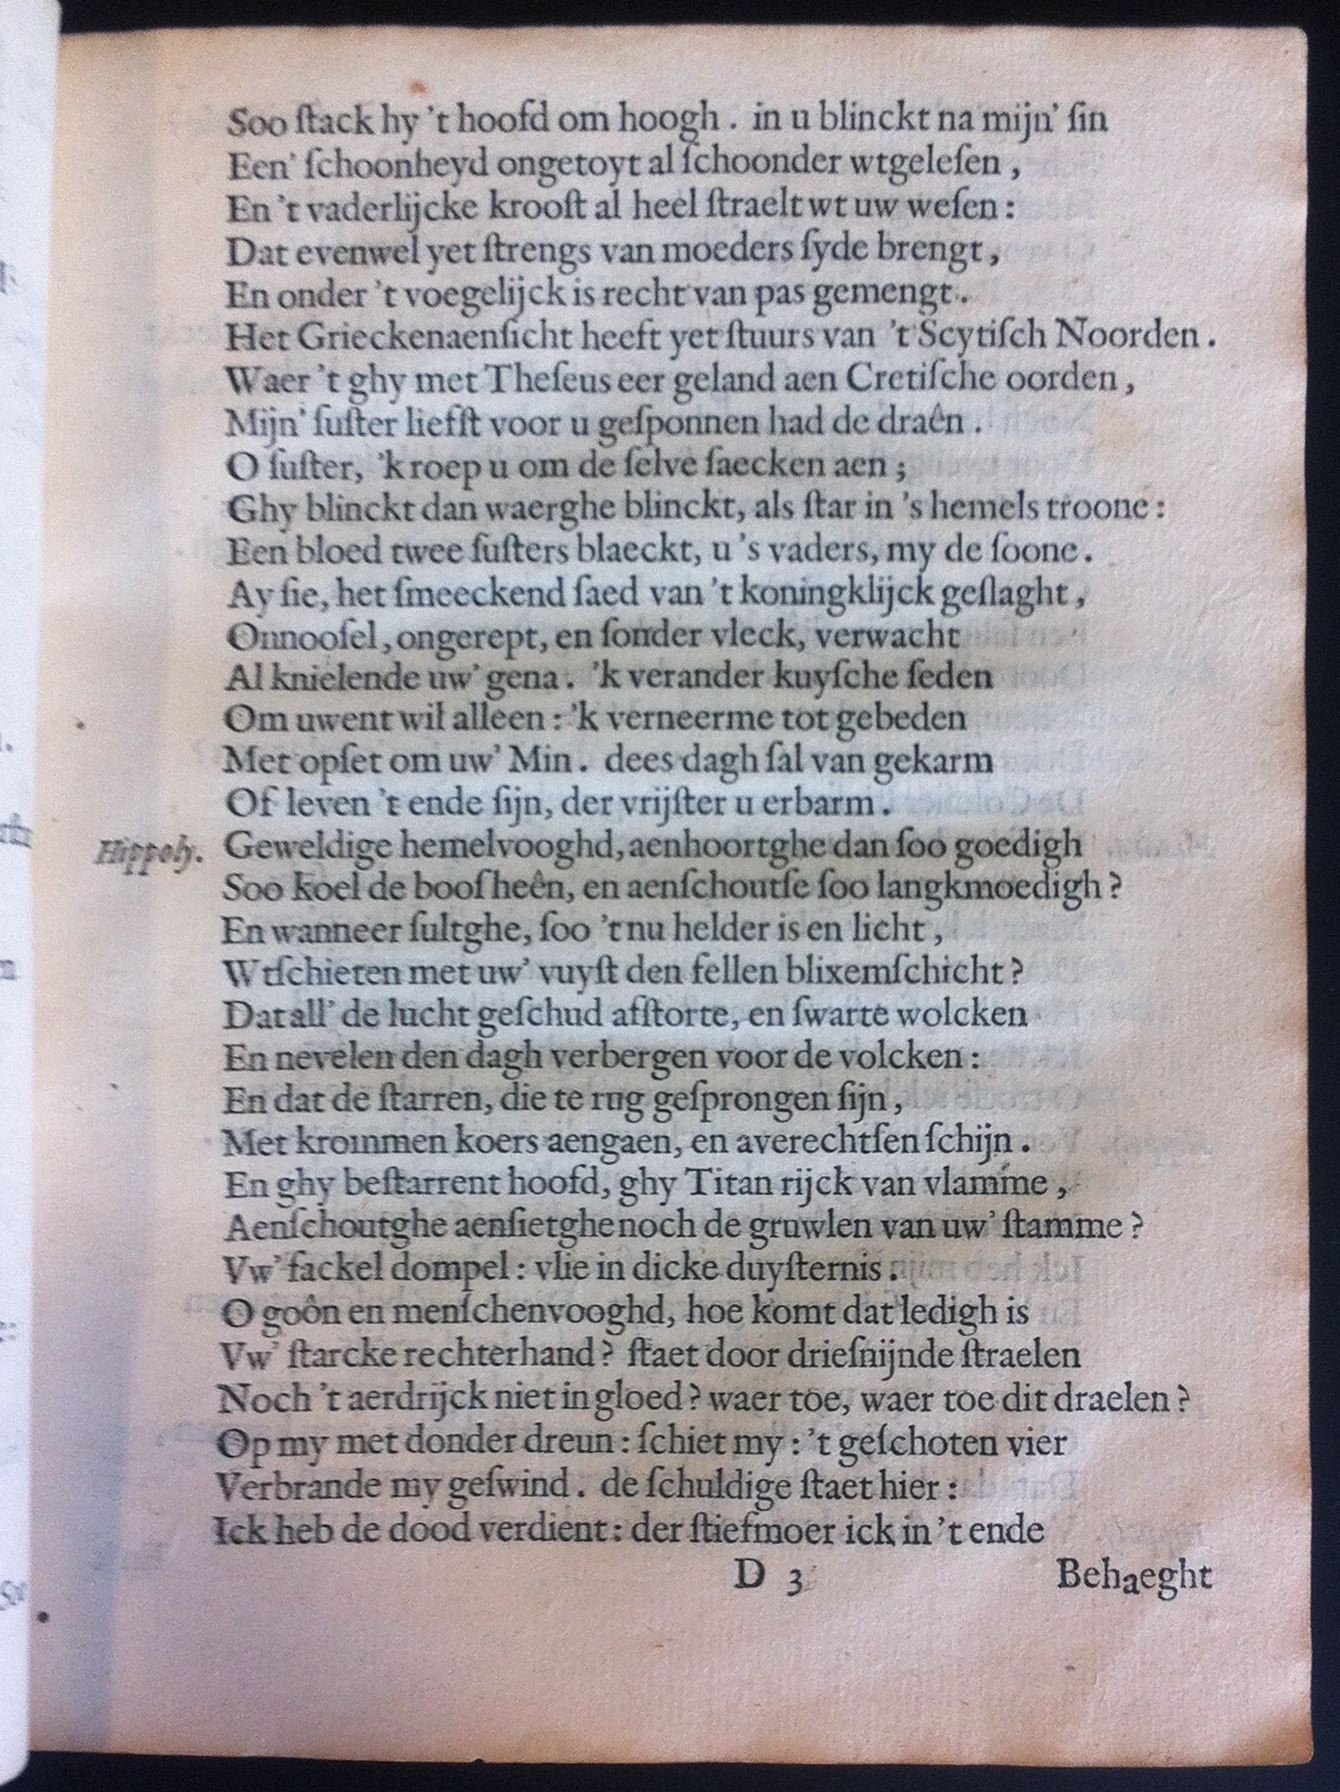 Soo ſtack hy 't hoofd om hoogh. in u blinckt na mijn' ſin
Een' ſchoonheyd ongetoyt al ſchoonder wtgeleſen,
En 't vaderlijcke krooſt al heel ſtraelt wt uw weſen:
Dat evenwel yet ſtrengs van moeders ſyde brengt,
En onder 't voegelijck is recht van pas gemengt.
Het Grieckenaenſicht heeft yet ſtuurs van 't Scytiſch Noorden.
Waer 't ghy met Theſeus eer geland aen Cretiſche oorden,
Mijn' ſuſter liefſt voor u geſponnen had de draên.
O ſuſter, 'k roep u om de ſelve ſaecken aen;
Ghy blinckt dan waerghe blinckt, als ſtar in 's hemels troone:
Een bloed twee ſuſters blaeckt, u 's vaders, my de ſoone.
Ay ſie, het ſmeeckend ſaed van 't koningklijck geſlaght,
Onnooſel, ongerept, en ſonder vleck, verwacht
Al knielende uw' gena. 'k verander kuyſche ſeden
Om uwent wil alleen: 'k verneerme tot gebeden
Met opſet om uw' Min. dees dagh ſal van gekarm
Of leven 't ende ſijn, der vrijſter u erbarm.
Hippoly. Geweldige hemelvooghd, aenhoortghe dan ſoo goedigh
Soo koel de boofheên, en aenſchoutſe ſoo langkmoedigh?
En wanneer ſultghe, ſoo 't nu helder is en licht,
Wtſchieten met uw' vuyſt den fellen blixemſchicht?
Dat all' de lucht geſchud afſtorte, en ſwarte wolcken
En nevelen den dagh verbergen voor de volcken:
En dat de ſtarren, die te rug geſprongen ſijn,
Met krommen koers aengaen, en averechtſen ſchijn.
En ghy beſtarrent hoofd, ghy Titan rijck van vlamme,
Aenſchoutghe aenſietghe noch de gruwlen van uw' ſtamme?
Vw' fackel dompel: vlie in dicke duyſternis.
O goôn en menſchenvooghd, hoe komt dat ledigh is
Vw' ſtarcke rechterhand? ſtaet door drieſnijnde ſtraelen
Noch 't aerdrijck niet in gloed? waer toe, waer toe dit draelen?
Op my met donder dreun: ſchiet my: 't geſchoten vier
Verbrande my geſwind. de ſchuldige ſtaet hier:
Ick heb de dood verdient: der ſtiefmoer ick in 't ende
D 3 Behaeght